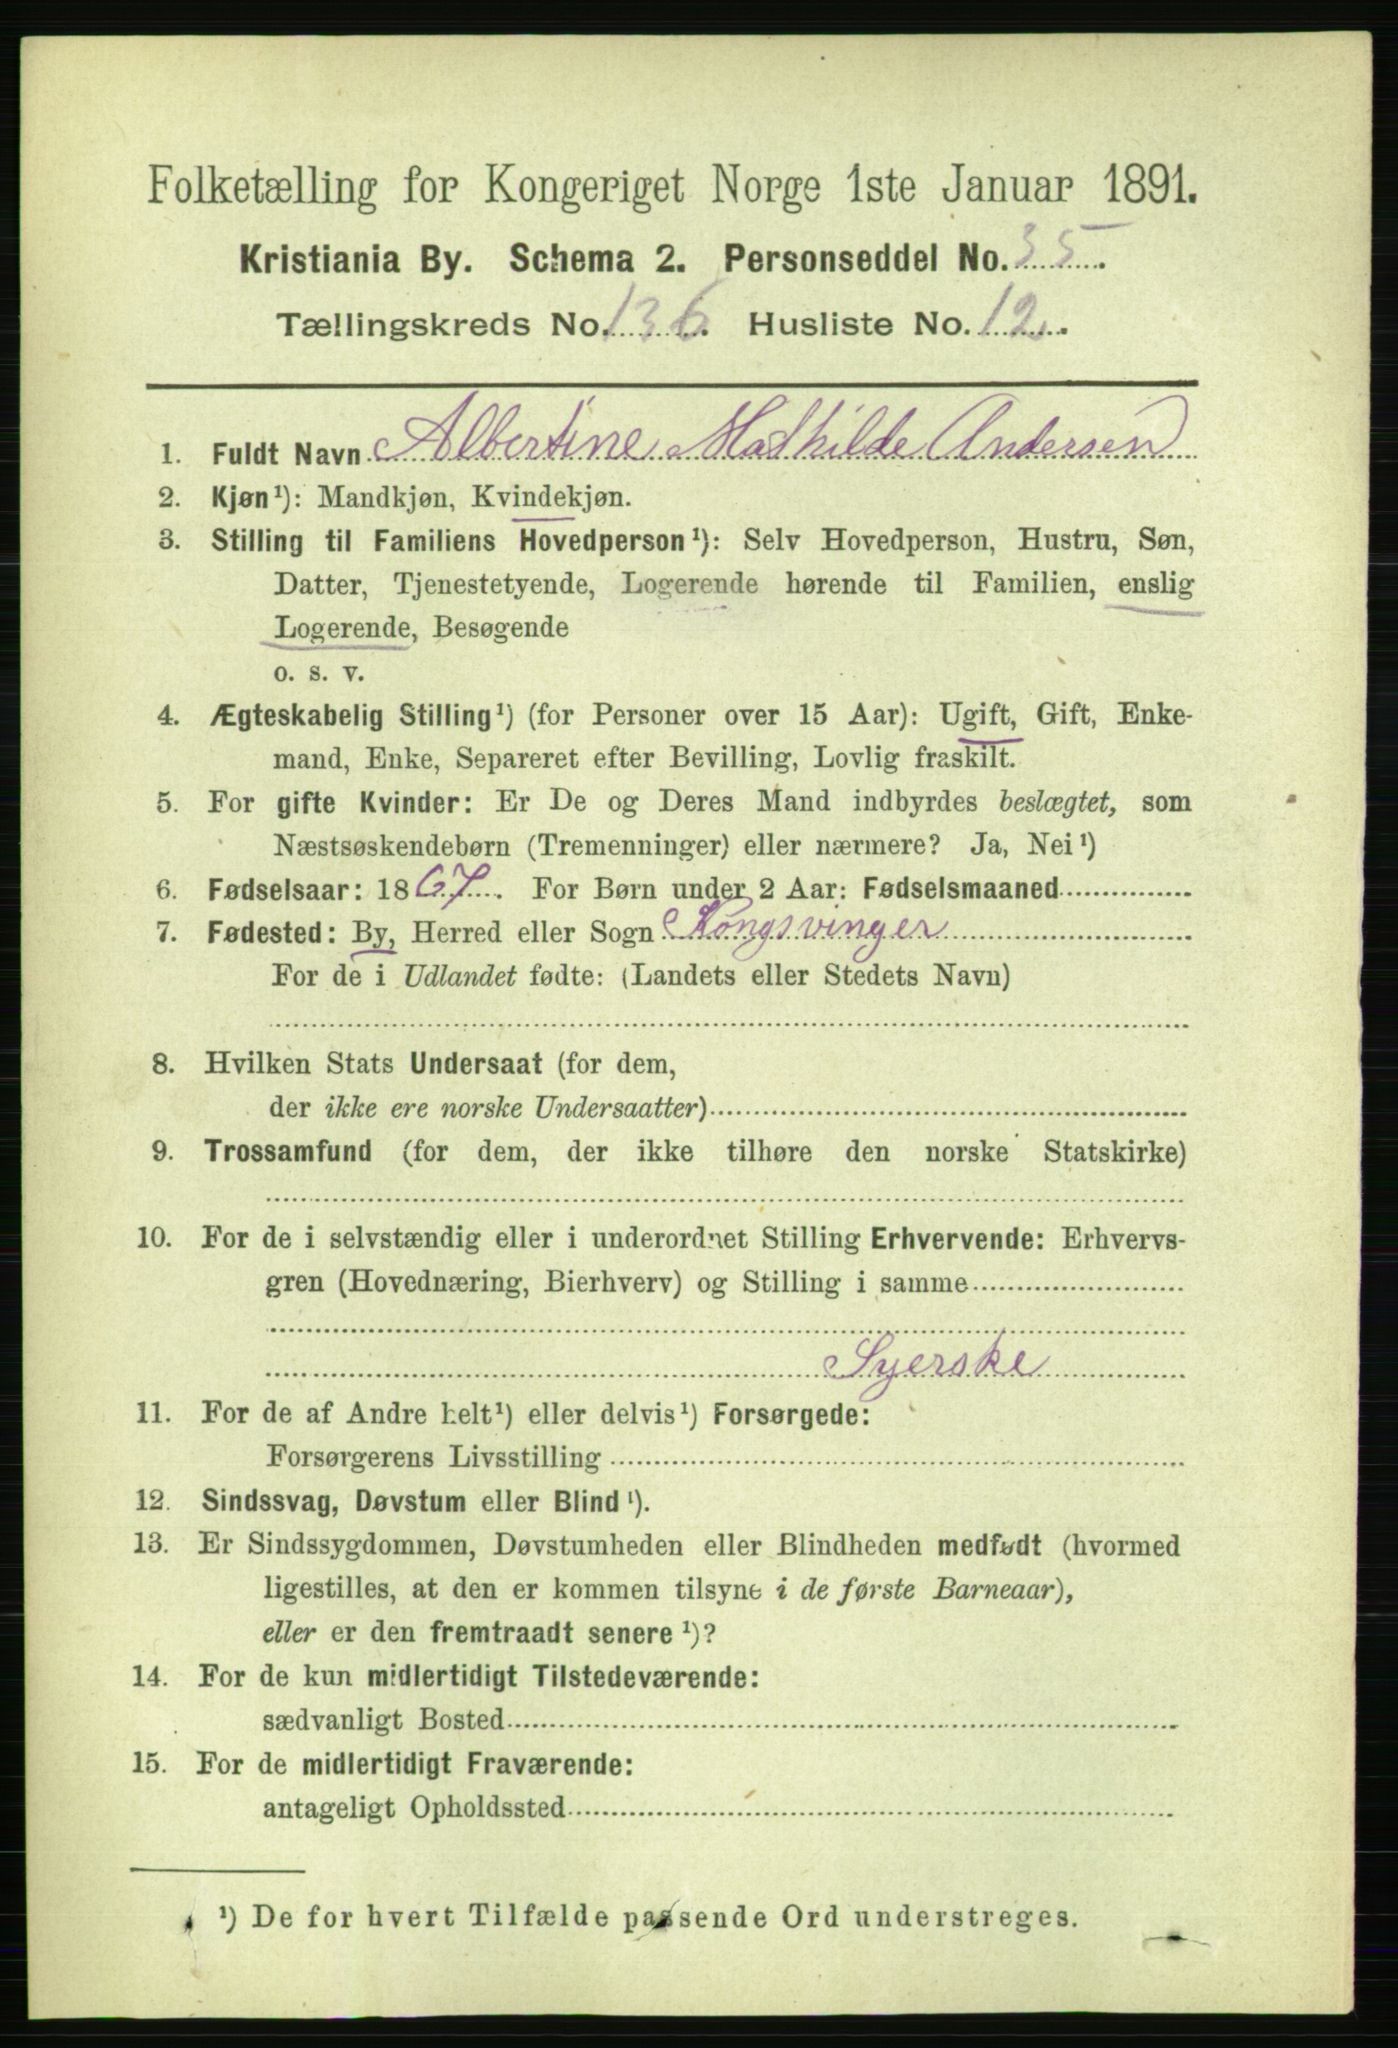 Folketælling for Kongeriget Norge 1ste Januar 1891.
Kristiania By. Schema 2. Personseddel No. 35.
Tællingskreds No. 136. Husliste No. 12.
1. Fuldt Navn Albertine Mathilde Andersen
2. Kjøn¹): Mandkjøn, Kvindekjøn.
3. Stilling til Familiens Hovedperson¹): Selv Hovedperson, Hustru, Søn,
Datter, Tjenestetyende, Logerende hørende til Familien, enslig
Logerende, Besøgende
o. s. v.
4. Ægteskabelig Stilling¹) (for Personer over 15 Aar): Ugift, Gift, Enke-
mand, Enke, Separeret efter Bevilling, Lovlig fraskilt.
5. For gifte Kvinder: Er De og Deres Mand indbyrdes beslægtet, som
Næstsøskendebørn (Tremenninger) eller nærmere? Ja, Nei¹)
6. Fødselsaar: 1867. For Børn under 2 Aar: Fødselsmaaned
7. Fødested: By, Herred eller Sogn Kongsvinger
For de i Udlandet fødte: (Landets eller Stedets Navn)
8. Hvilken Stats Undersaat (for dem,
der ikke ere norske Undersaatter)
9. Trossamfund (for dem, der ikke tilhøre den norske Statskirke)
10. For de i selvstændig eller i underordnet Stilling Erhvervende: Erhvervs-
gren (Hovednæring, Bierhverv) og Stilling i samme
Syerske
11. For de af Andre helt¹) eller delvis¹) Forsørgede:
Forsørgerens Livsstilling
12. Sindssvag, Døvstum eller Blind¹).
13. Er Sindssygdommen, Døvstumheden eller Blindheden medfødt (hvormed
ligestilles, at den er kommen tilsyne i de første Barneaar),
eller er den fremtraadt senere¹)?
14. For de kun midlertidigt Tilstedeværende:
sædvanligt Bosted
15. For de midlertidigt Fraværende:
antageligt Opholdssted
¹) De for hvert Tilfælde passende Ord understreges.